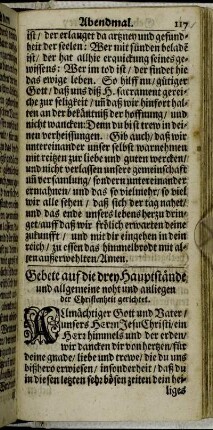 Abendmal. 117
ist/ der erlanget da artzney und gesund-
heit der seelen: Wer mit sünden beladē
ist/ der hat allhie erquickung seines ge-
wissens: Wer im tod ist/ der findet hie
das ewige leben. So hilff nu/ gütiger
Gott/ daß uns diß H. sacrament gerei-
che zur seligkeit/ uñ daß wir hinfort hal-
ten an der bekäntniß der hoffnung/ und
nicht wancken: Denn du bist trew in dei-
nen verheissungen. Gib auch/ daß wir
untereinander unser selbst warnehmen
mit reitzen zur liebe und guten wercken/
und nicht verlassen unsere gemeinschaft
uñ versamlung/ sondern untereinander
ermahnen/ und das so viel mehr/ so viel
wir alle sehen/ daß sich der tag nahet/
und das ende unsers lebens herzu drin-
get/ auff daß wir frölich erwarten deine
zukunfft/ und mit dir eingehen in dein
reich/ zu essen das himmelbrodt mit al-
len außerwehlten/ Amen.
Gebete auf die drey Hauptstände
und allgemeine noht und anliegen
der Christenheit gerichtet.
Allmächtiger Gott und Vater/
unsers Herrn Jesu Christi/ ein
Herr himmels und der erden/
wir dancken dir von hertzen/ für
deine gnade/ liebe und trewe/ die du uns
bißhero erwiesen/ insonderheit/ daß du
in diesen letzten sehr bösen zeiten dein hei-
liges